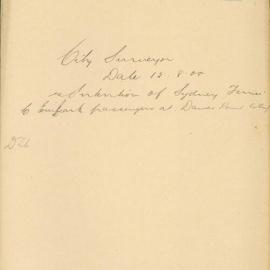 City Surveyor
Date 13.8.00
re Intention of Sydney Ferries
to Embark passengers at Dawes Point